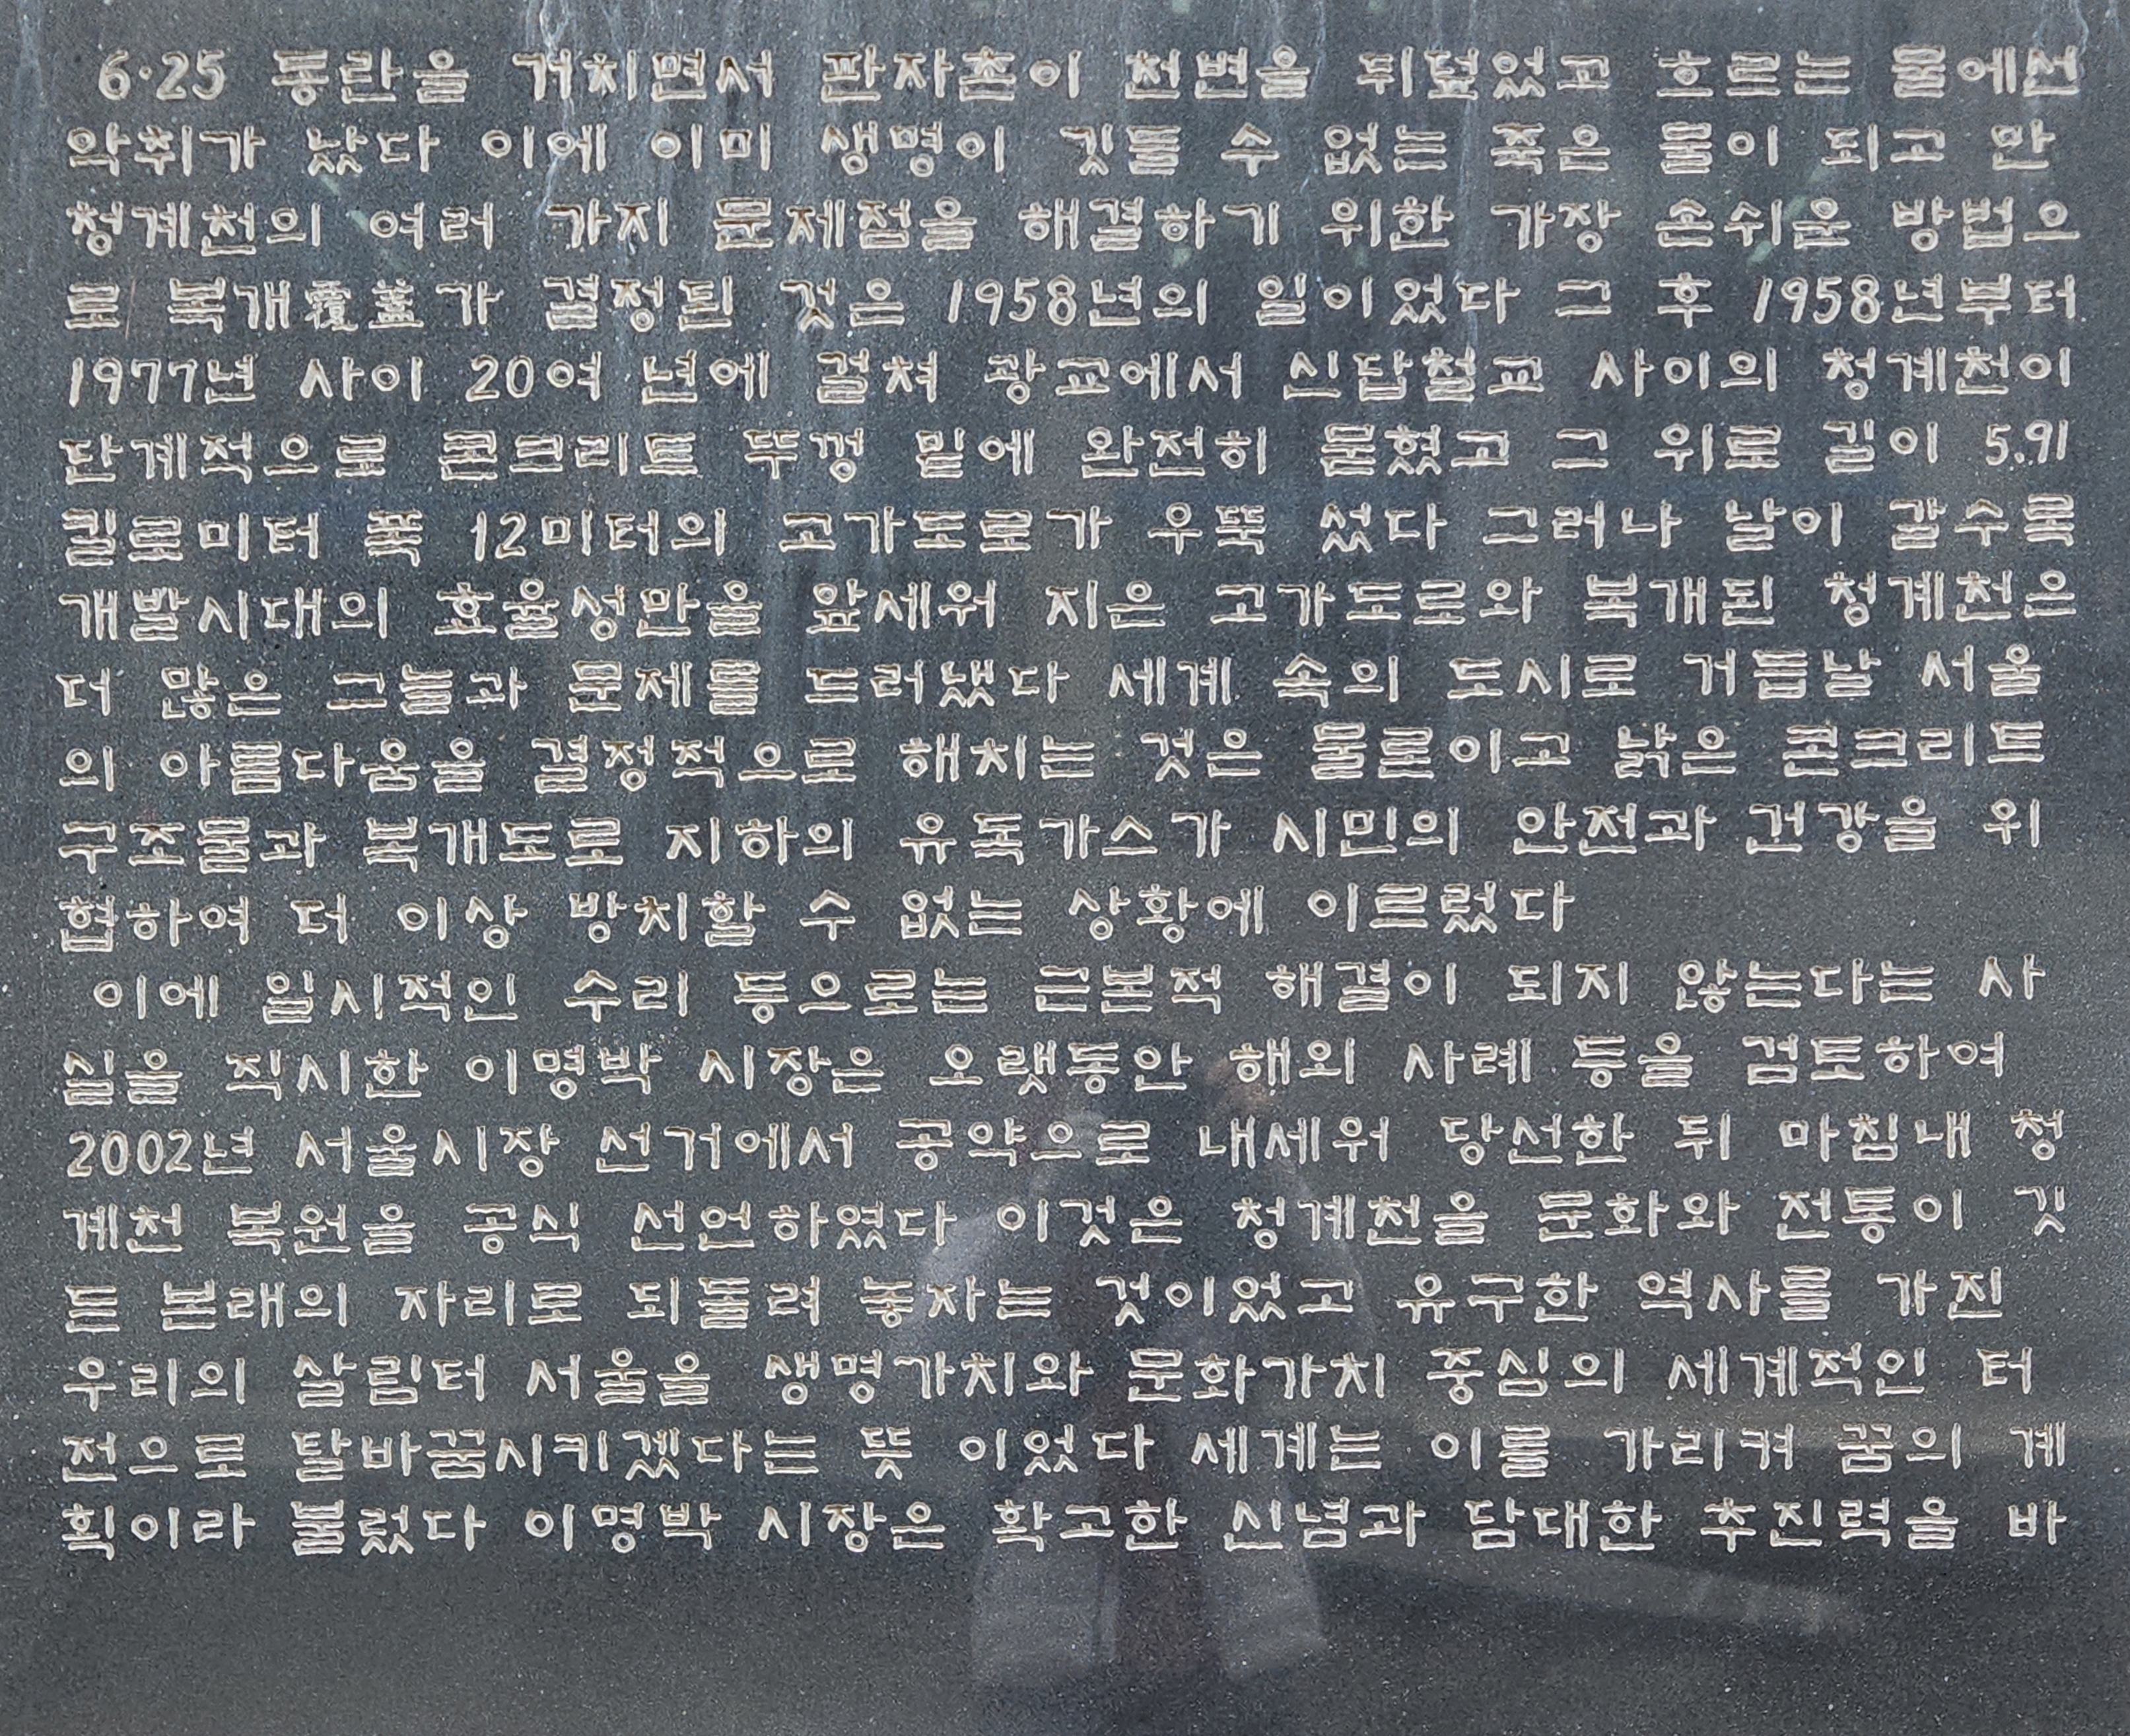 6·25 동란을 거치면서 판자촌이 천변을 뒤덮었고 흐르는 물에선
악취가 났다 이에 이미 생명이 깃들 수 없는 죽은 물이 되고 만
청계천의 여러 가지 문제점을 해결하기 위한 가장 손쉬운 방법으
로 복개覆蓋가 결정된 것은 1958년의 일이었다 그 후 1958년부터
1977년 사이 20여 년에 걸쳐 광교에서 신답철교 사이의 청계천이
단계적으로 콘크리트 뚜껑 밑에 완전히 묻혔고 그 위로 길이 5.91
킬로미터 폭 12미터의 고가도로가 우뚝 섰다 그러나 날이 갈수록
개발시대의 효율성만을 앞세워 지은 고가도로와 복개된 청계천은
더 많은 그늘과 문제를 드러냈다 세계 속의 도시로 거듭날 서울
의 아름다움을 결정적으로 해치는 것은 물론이고 낡은 콘크리트
구조물과 복개도로 지하의 유독가스가 시민의 안전과 건강을 위
협하여 더 이상 방치할 수 없는 상황에 이르렀다
이에 일시적인 수리 등으로는 근본적 해결이 되지 않는다는 사
실을 직시한 이명박 시장은 오랫동안 해외 사례 등을 검토하여
2002년 서울시장 선거에서 공약으로 내세워 당선한 뒤 마침내 청
계천 복원을 공식 선언하였다 이것은 청계천을 문화와 전통이 깃
든 본래의 자리로 되돌려 놓자는 것이었고 유구한 역사를 가진
우리의 살림터 서울을 생명가치와 문화가치 중심의 세계적인 터
전으로 탈바꿈시키겠다는 뜻 이었다 세계는 이를 가리켜 꿈의 계
획이라 불렀다 이명박 시장은 확고한 신념과 담대한 추진력을 바